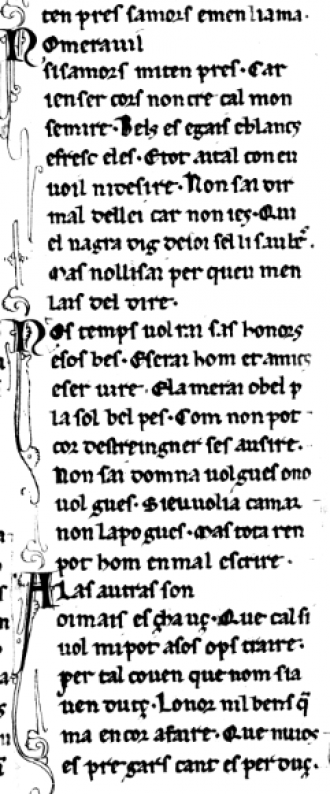 ten pres samors emenliama.
Nomerauil
sisamors miten pres. Car
ienser cors non cre cal mon
semire. Bels es egais eblancs
efresc eles. Etot aital con eu
uoil nidesire. Non sai dir
mal dellei car non ies. Qui
el nagra dig deioi sel li saubr̄.
Mas nollisai per queu men
lais del dire.
Tos temps uol rai sas honors
esos bes. Eserai hom et amics
eser uire. Elamerai obel p
la sol bel pes. Com non pot
cor destreingner ses ausire.
Non sai domna uolgues ono
uol gues. Sieuuolia camar
non la pogues. Mas tota ren
pot hom en mal escrire.
Alas autras son
oimais eschauç. Que cal si
uol mi pot asos ops traire.
per tal couen que nom sia
uen duiç. Lonor nil bens q̄
ma encor afaire. Que nuios
es pregars cant es perduç.